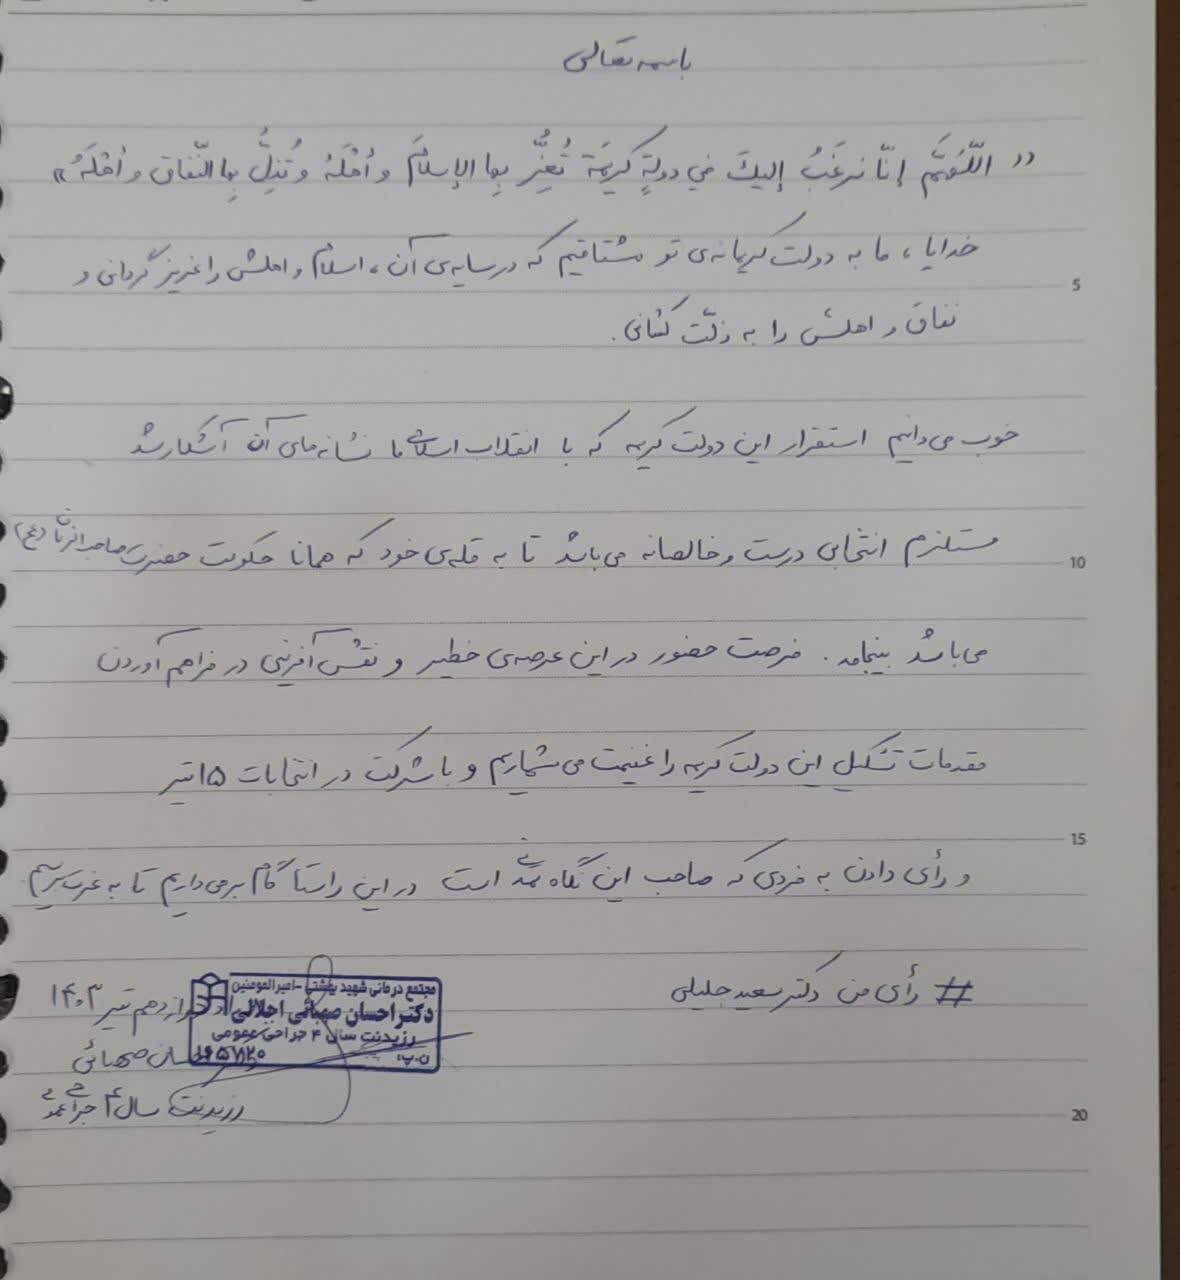 باسمه تعالی
«اللّهُمَّ إنّا نَرغَبُ إليكَ في دولةٍ كريمَة تُعِزُّ بِها الإسلامَ و أهْلَهُ و تُذِلُّ بِها النِّفاق و أهْلَهُ»
خدایا، ما به دولت کریمانه‌ی تو مشتاقیم که در سایه‌ی آن، اسلام و اهلش را عزیز گردانی و
نفاق و اهلش را به ذلّت کشانی.
خوب می‌دانیم استقرار این دولت کریمه که با انقلاب اسلامی ما نشانه‌های آن آشکار شد
مستلزم انتخابی درست و خالصانه می‌باشد تا به قله‌ی خود که همانا حکومت حضرت صاحب الزمان (عج)
می‌باشد بینجامد. فرصت حضور در این عرصه‌ی خطیر و نقش آفرینی در فراهم آوردن
مقدمات تشکیل این دولت کریمه را غنیمت می‌شماریم و با شرکت در انتخابات ۱۵ تیر
و رأی دادن به فردی که صاحب این نگاه است در این راستا گام برمی‌داریم تا به
# رأی من دکتر سعید جلیلی
دوازدهم تیر ۱۴۰۳
صهبائی
رزیدنت سال ۴ جراحی عمومی
مجتمع درمانی شهید بهشتی - امیرالمومنین
دکتر احسان صهبائی اجلالی
رزیدنت سال ۴ جراحی عمومی
ن.پ: